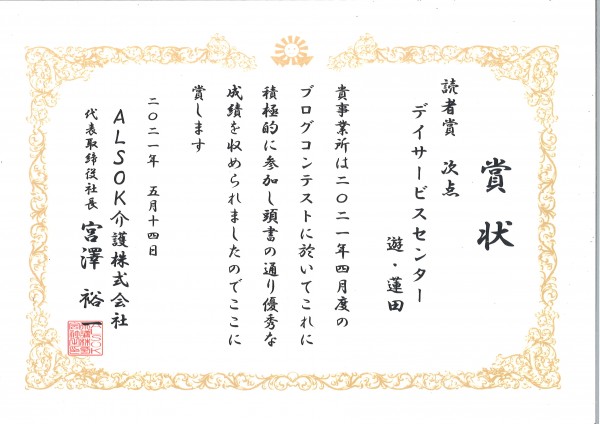 賞状
読者賞 次点
デイサービスセンター
遊・蓮田
貴事業所は二〇二一年四月度の
ブログコンテストに於いてこれに
積極的に参加し頭書の通り優秀な
成績を収められましたのでここに
賞します
二〇二一年 五月十四日
ALSOK介護株式会社
代表取締役社長 宮澤 裕一